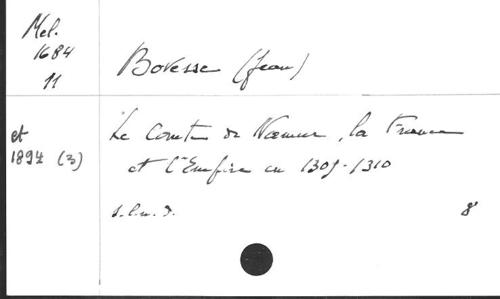 Mel.
1684
11
Bovesse (Jean)
et
1894 (3)
Le Comte de Namur, la France
et l'Empire en 1309-1310
s.l.n.d.
8°